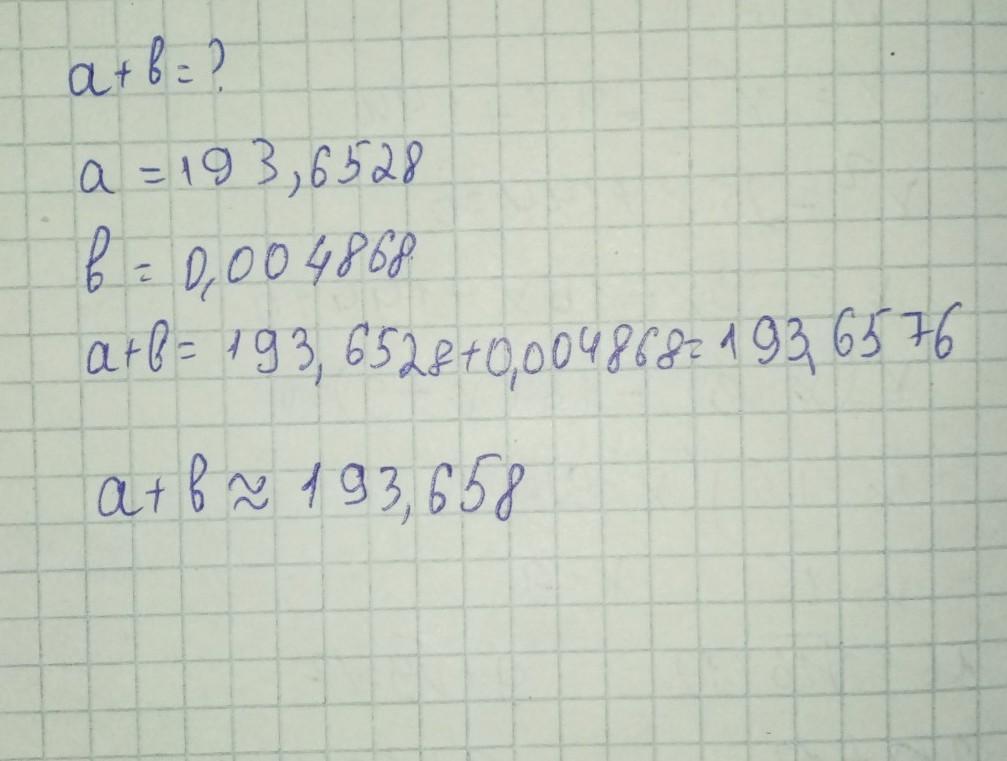 a+b=?
a=193,6528
b=0,004868
a+b=193,6528+0,004868=193,6576
a+b≈193,658